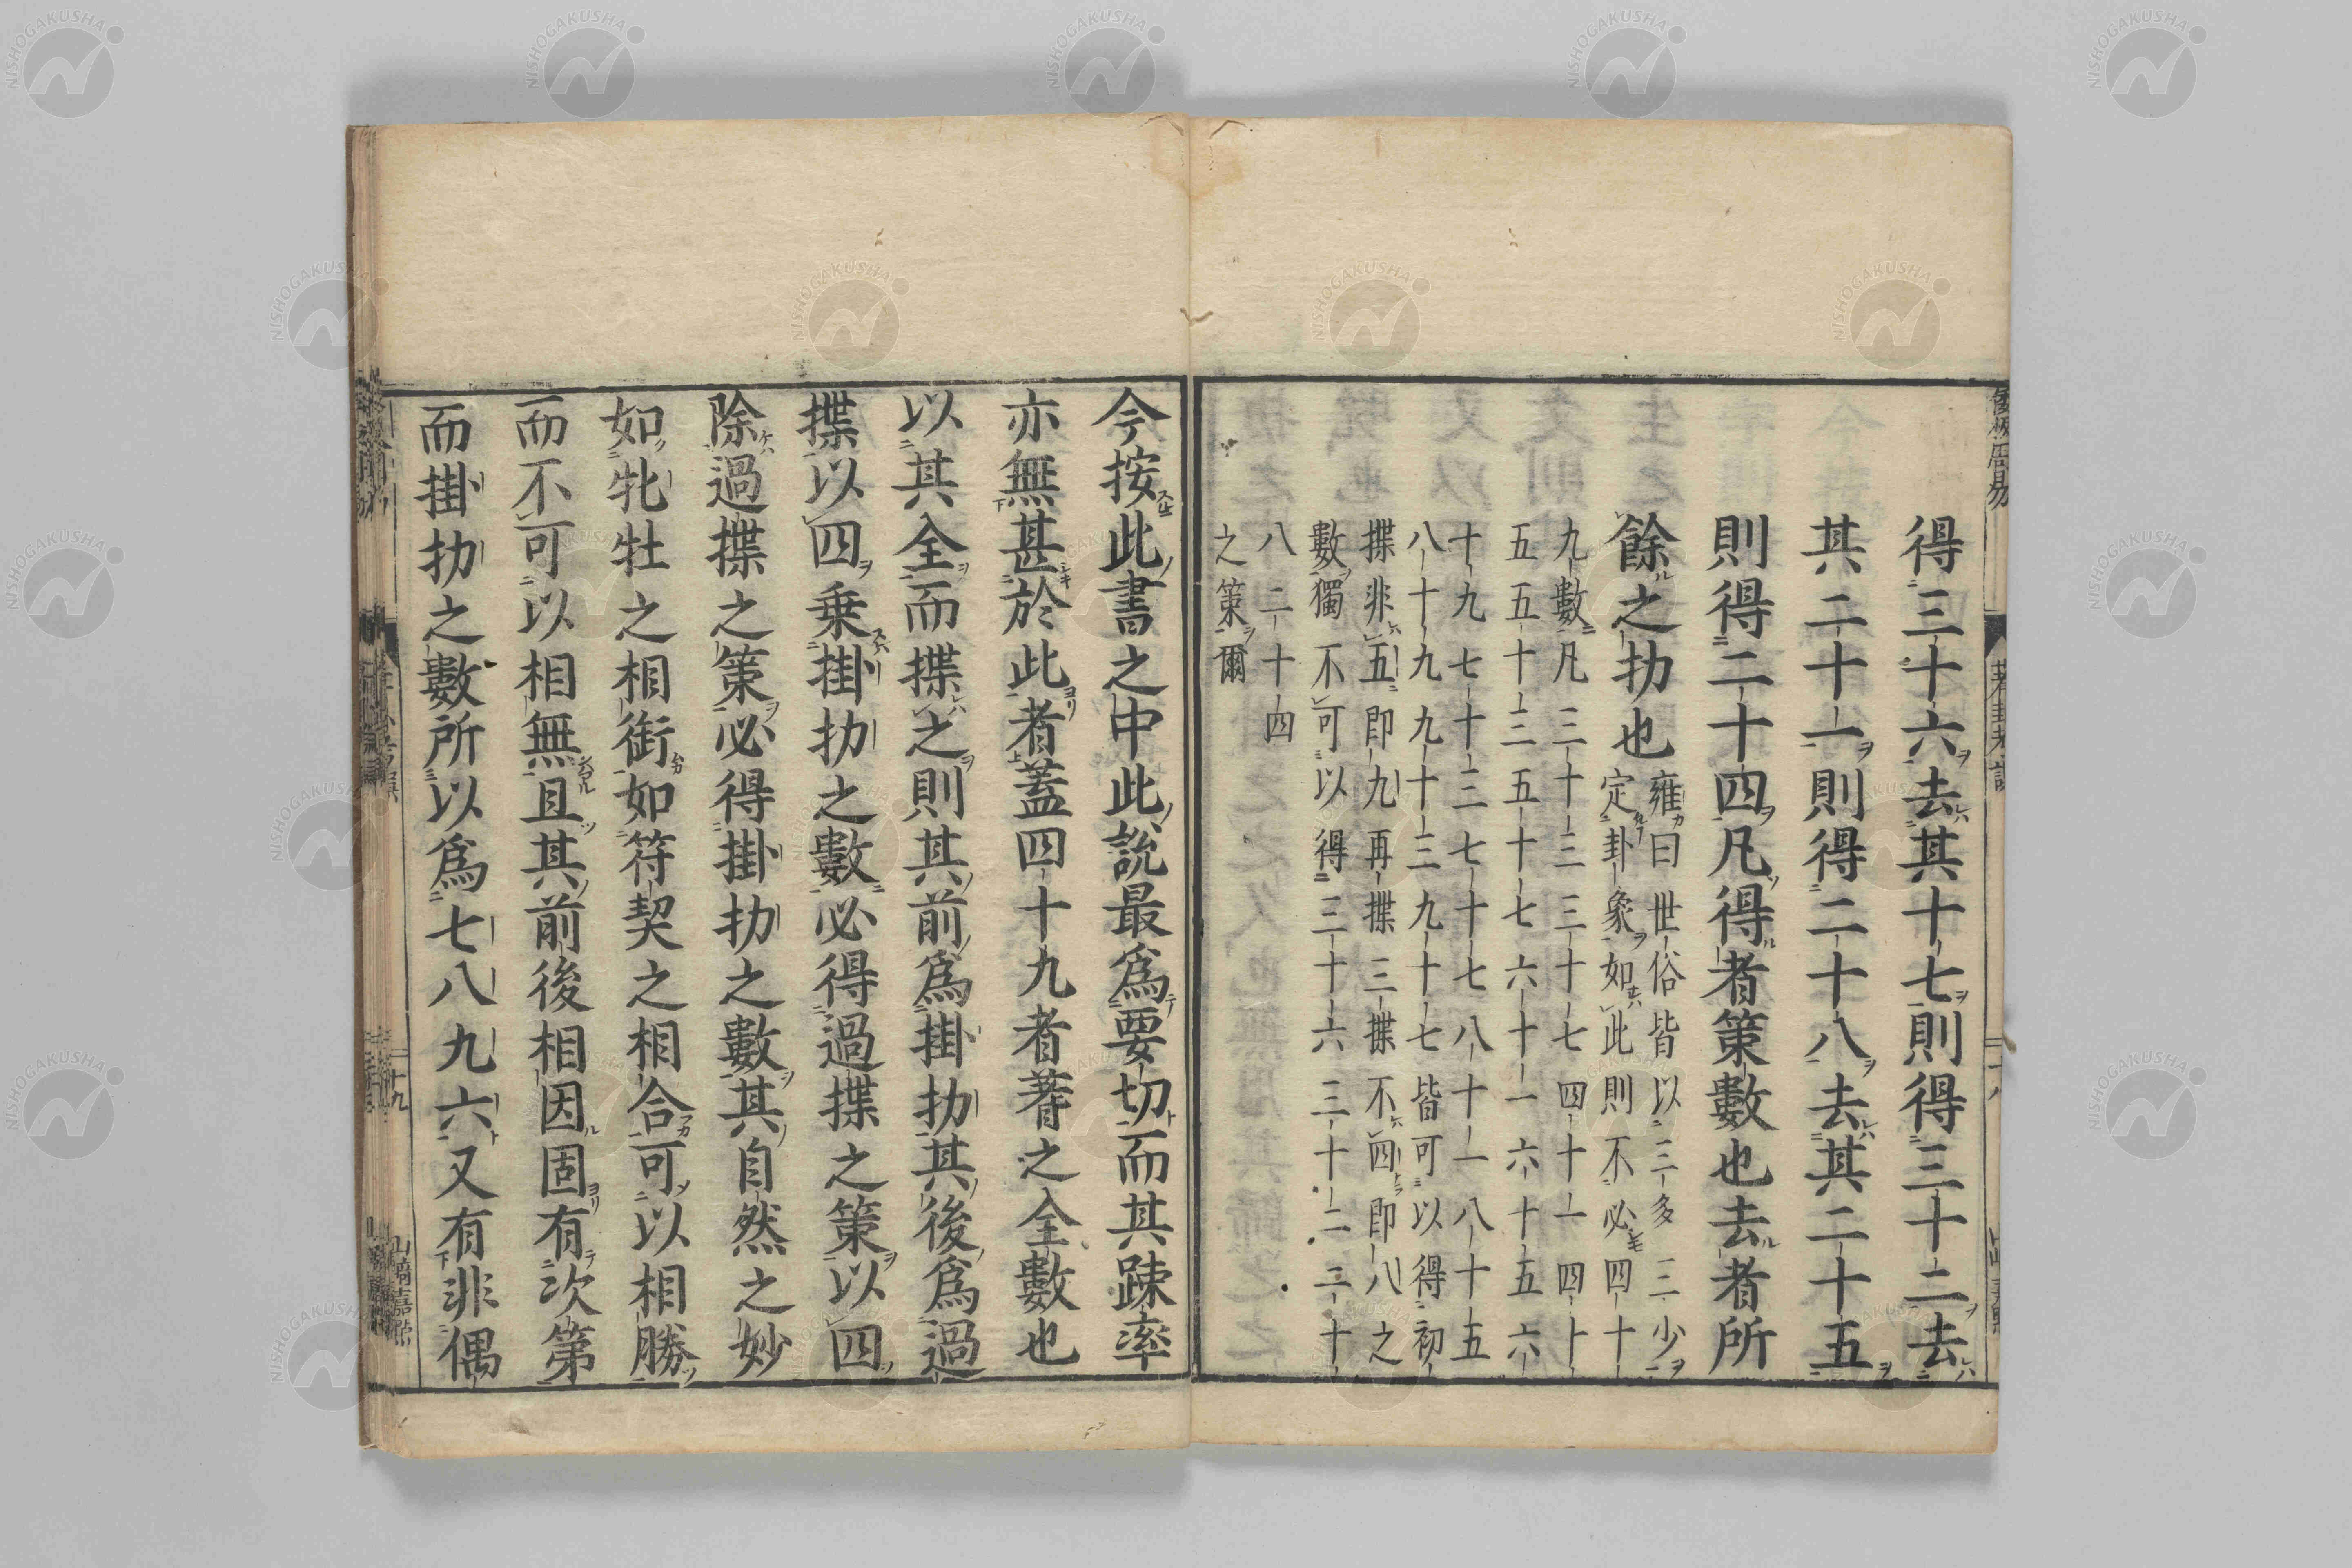 得三十六去其十七則得三十二去
其二十一則得二十八去其二十五
則得二十四凡得者策數也去者所
餘之扐也
雍曰世俗皆以三多三少
定卦象如此則不必四十
九數凡三十三三十七四十一四十
五五十三五十七六十一六十五六
十九七十三七十七八十一八十五
八十九九十三九十七皆可以得初
揲非五即九再揲三揲不四即八之
數獨不可以得三十六三十二二十
八二十四
之策爾
今按此書之中此說最爲要切而其踈率
亦無甚於此者蓋四十九者蓍之全數也
以其全而揲之則其前爲掛扐其後爲過
揲以四乗掛扐之數必得過揲之策以四
除過揲之策必得掛扐之數其自然之妙
如牝牡之相銜如符契之相合可以相勝
而不可以相無且其前後相因固有次第
而掛扐之數所以爲七八九六又有非偶
十九
山﨑嘉點
NISHOGAKUSHA